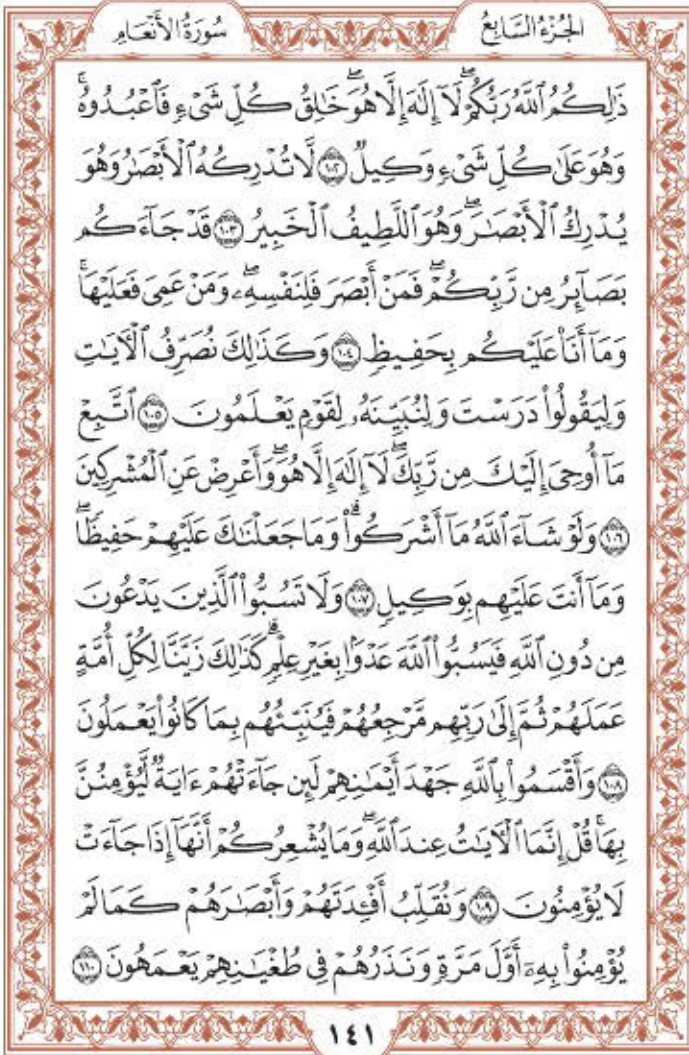 الجُزْءُ السَّابِعُ
سُورَةُ الأَنْعَامِ
ذَٰلِكُمُ ٱللَّهُ رَبُّكُمْۖ لَآ إِلَٰهَ إِلَّا هُوَۖ خَٰلِقُ كُلِّ شَىْءٍ فَٱعْبُدُوهُۚ
وَهُوَ عَلَىٰ كُلِّ شَىْءٍ وَكِيلٌ ۝١٠٢ لَّا تُدْرِكُهُ ٱلْأَبْصَٰرُ وَهُوَ
يُدْرِكُ ٱلْأَبْصَٰرَۖ وَهُوَ ٱللَّطِيفُ ٱلْخَبِيرُ ۝١٠٣ قَدْ جَآءَكُم
بَصَآئِرُ مِن رَّبِّكُمْۖ فَمَنْ أَبْصَرَ فَلِنَفْسِهِۦۖ وَمَنْ عَمِىَ فَعَلَيْهَاۚ
وَمَآ أَنَا۠ عَلَيْكُم بِحَفِيظٍ ۝١٠٤ وَكَذَٰلِكَ نُصَرِّفُ ٱلْءَايَٰتِ
وَلِيَقُولُوا۟ دَرَسْتَ وَلِنُبَيِّنَهُۥ لِقَوْمٍ يَعْلَمُونَ ۝١٠٥ ٱتَّبِعْ
مَآ أُوحِىَ إِلَيْكَ مِن رَّبِّكَۖ لَآ إِلَٰهَ إِلَّا هُوَۖ وَأَعْرِضْ عَنِ ٱلْمُشْرِكِينَ
۝١٠٦ وَلَوْ شَآءَ ٱللَّهُ مَآ أَشْرَكُوا۟ۗ وَمَا جَعَلْنَٰكَ عَلَيْهِمْ حَفِيظًاۖ
وَمَآ أَنتَ عَلَيْهِم بِوَكِيلٍ ۝١٠٧ وَلَا تَسُبُّوا۟ ٱلَّذِينَ يَدْعُونَ
مِن دُونِ ٱللَّهِ فَيَسُبُّوا۟ ٱللَّهَ عَدْوًۢا بِغَيْرِ عِلْمٍۗ كَذَٰلِكَ زَيَّنَّا لِكُلِّ أُمَّةٍ
عَمَلَهُمْ ثُمَّ إِلَىٰ رَبِّهِم مَّرْجِعُهُمْ فَيُنَبِّئُهُم بِمَا كَانُوا۟ يَعْمَلُونَ
۝١٠٨ وَأَقْسَمُوا۟ بِٱللَّهِ جَهْدَ أَيْمَٰنِهِمْ لَئِن جَآءَتْهُمْ ءَايَةٌ لَّيُؤْمِنُنَّ
بِهَاۚ قُلْ إِنَّمَا ٱلْءَايَٰتُ عِندَ ٱللَّهِۖ وَمَا يُشْعِرُكُمْ أَنَّهَآ إِذَا جَآءَتْ
لَا يُؤْمِنُونَ ۝١٠٩ وَنُقَلِّبُ أَفْـِٔدَتَهُمْ وَأَبْصَٰرَهُمْ كَمَا لَمْ
يُؤْمِنُوا۟ بِهِۦٓ أَوَّلَ مَرَّةٍ وَنَذَرُهُمْ فِى طُغْيَٰنِهِمْ يَعْمَهُونَ ۝١١٠
١٤١